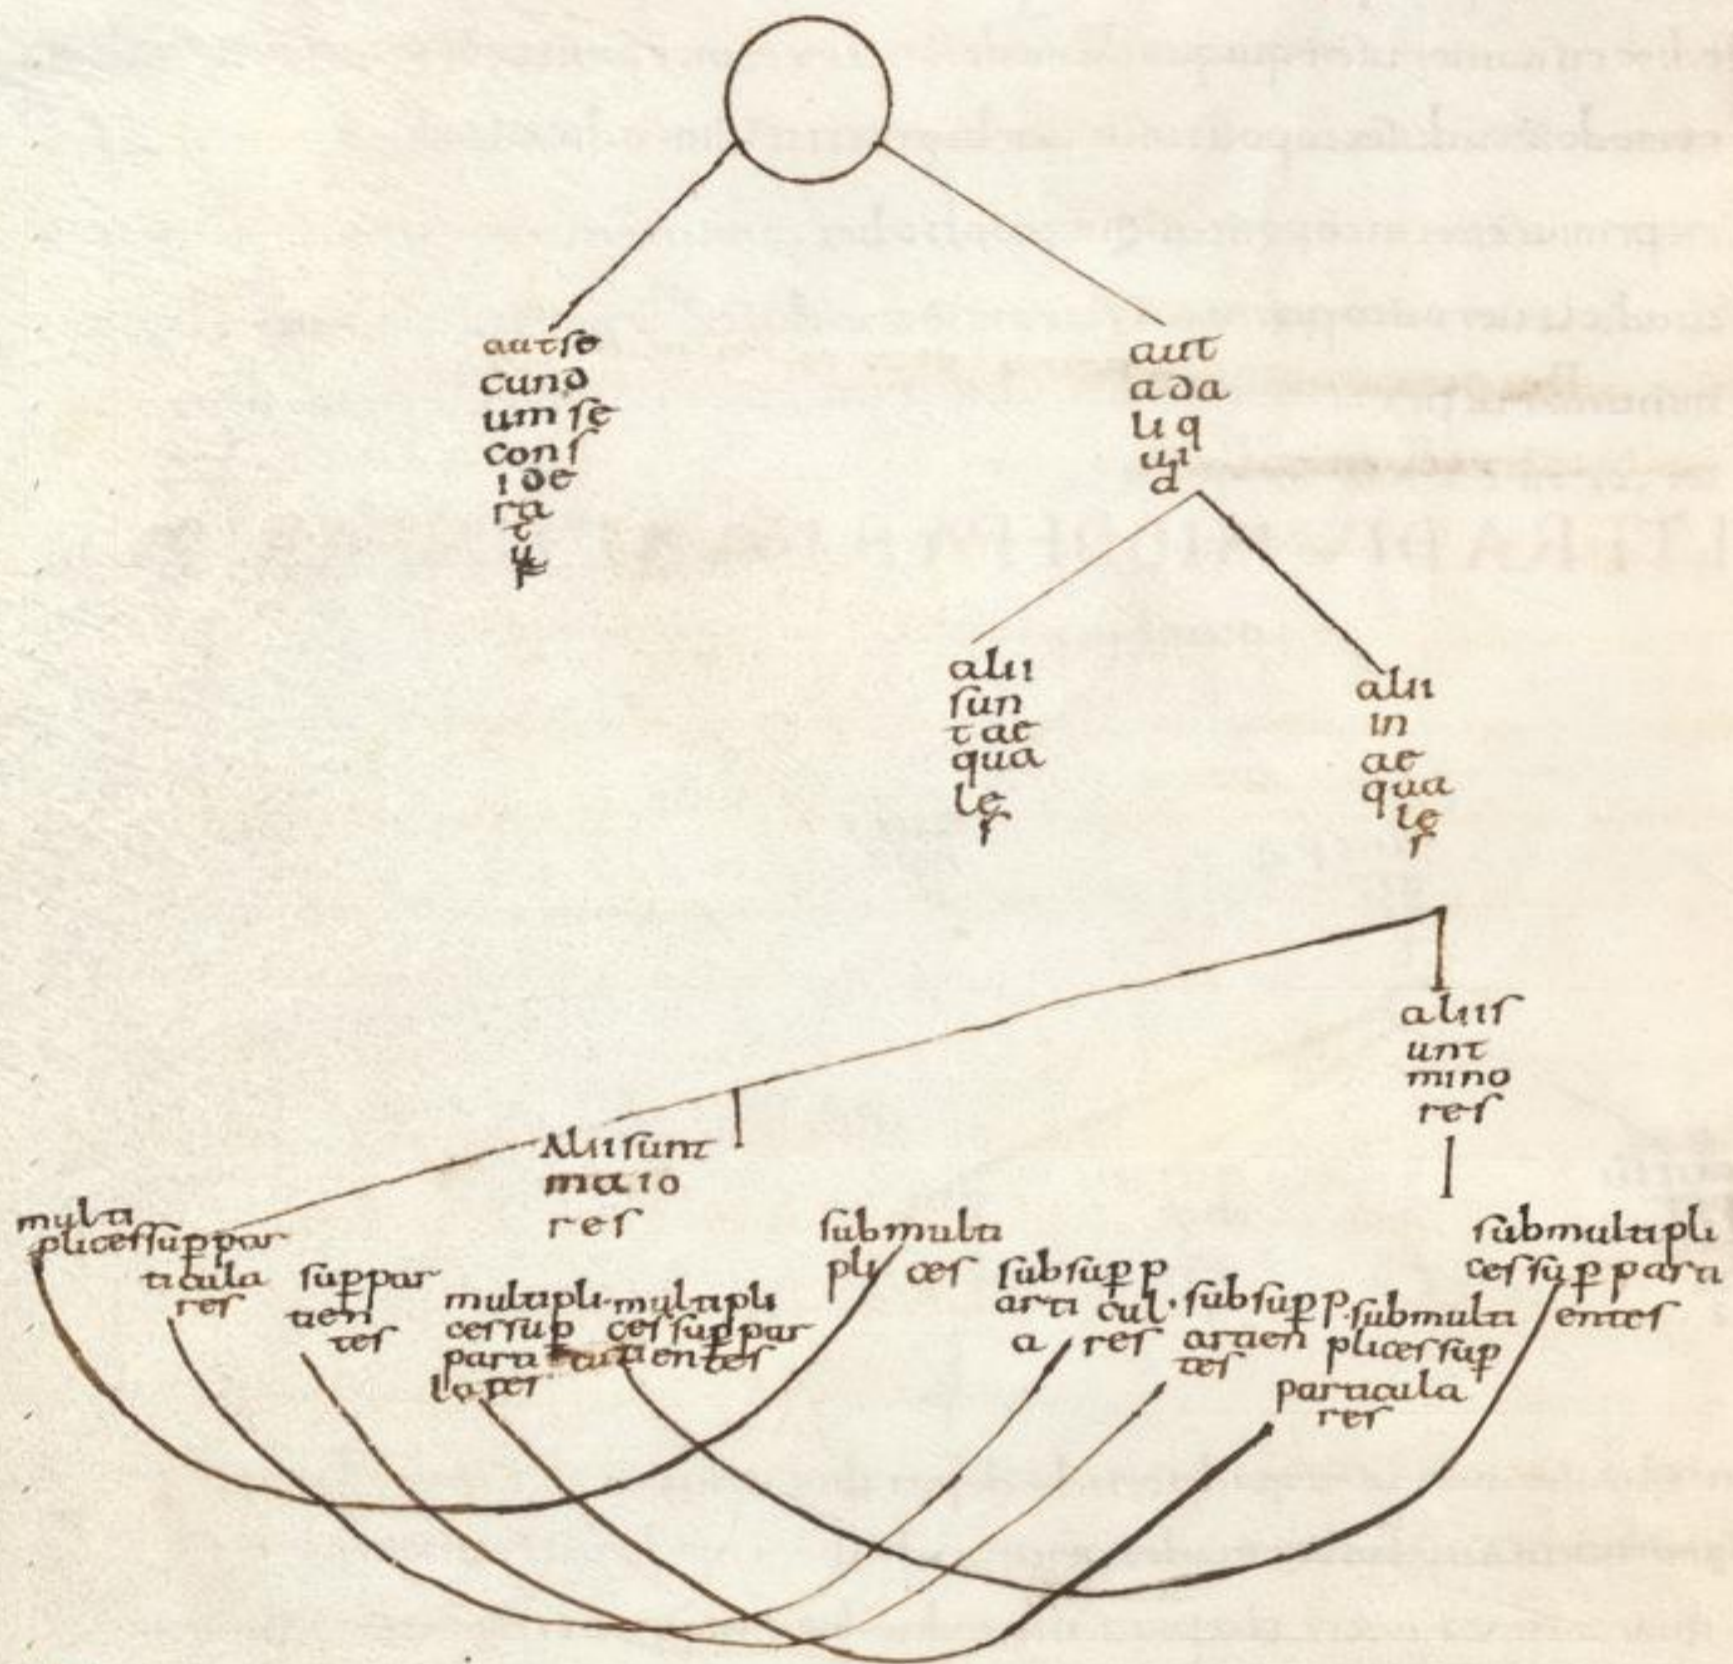 aut se
cund
um se
cons
ide
ra
t
ur
aut
ada
liq
ui
d
alii
sun
t ae
qua
le
s
alii
in
ae
qua
le
s
aliis
unt
mino
res
Alii sunt
maio
res
multi
plices
sup par
ticula
res
sup par
tien
tes
multipli
ces sup
parti cu
la res
multipli
ces sup par
tientes
submulti
pli ces
subsup p
arti cul
a res
subsup p
artien
tes
submulti
plices sup
particula
res
submultipli
ces sup parti
entes